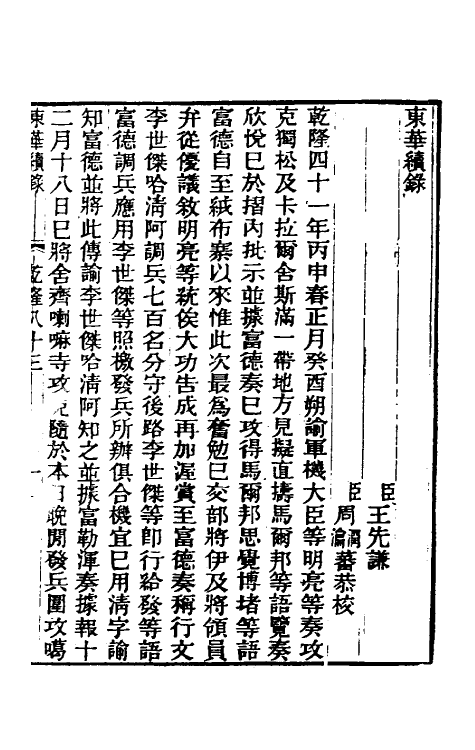 東華續錄
臣王先謙編
臣周瀹蕃恭校
乾隆四十一年丙申春正月癸酉朔諭軍機大臣等明亮等奏攻
克獨松及卡拉爾舍斯滿一帶地方見擬直擣馬爾邦等語覽奏
欣悅已於摺內批示並據富德奏已攻得馬爾邦思覺博堵等語
富德自至絨布寨以來惟此次最為奮勉已交部將伊及將領員
弁從優議敘明亮等統俟大功告成再加渥賞至富德奏稱行文
李世傑哈清阿調兵七百名分守後路李世傑等即行給發等語
富德調兵應用李世傑等照檄發兵所辦俱合機宜已用清字諭
知富德並將此傳諭李世傑哈清阿知之並據富勒渾奏據報十
二月十八日已將舍齊喇嘛寺攻克隨於本日晚間發兵圍攻噶
東華續錄 乾隆八十三 一